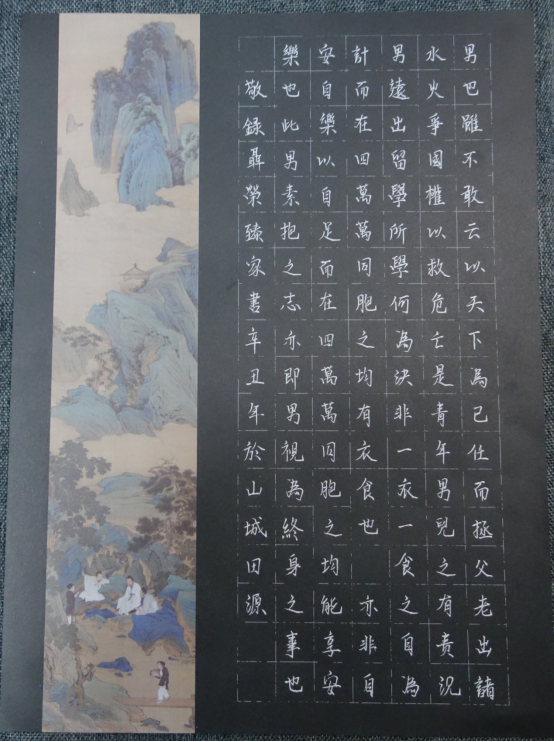 男巴雖不敢云以天下為己任而拯父老出諸
水火爭國權以救危亡是青年男兒之有責況
男遠出留學所學何為決非一衣一食之自為
計而在四萬萬同胞之均有衣食也 亦非自
安自樂以自足而在四萬萬同胞之均能享安
樂也此男素抱之志亦即男視為終身之事也
敬錄聶榮臻家書辛丑年於山城田源